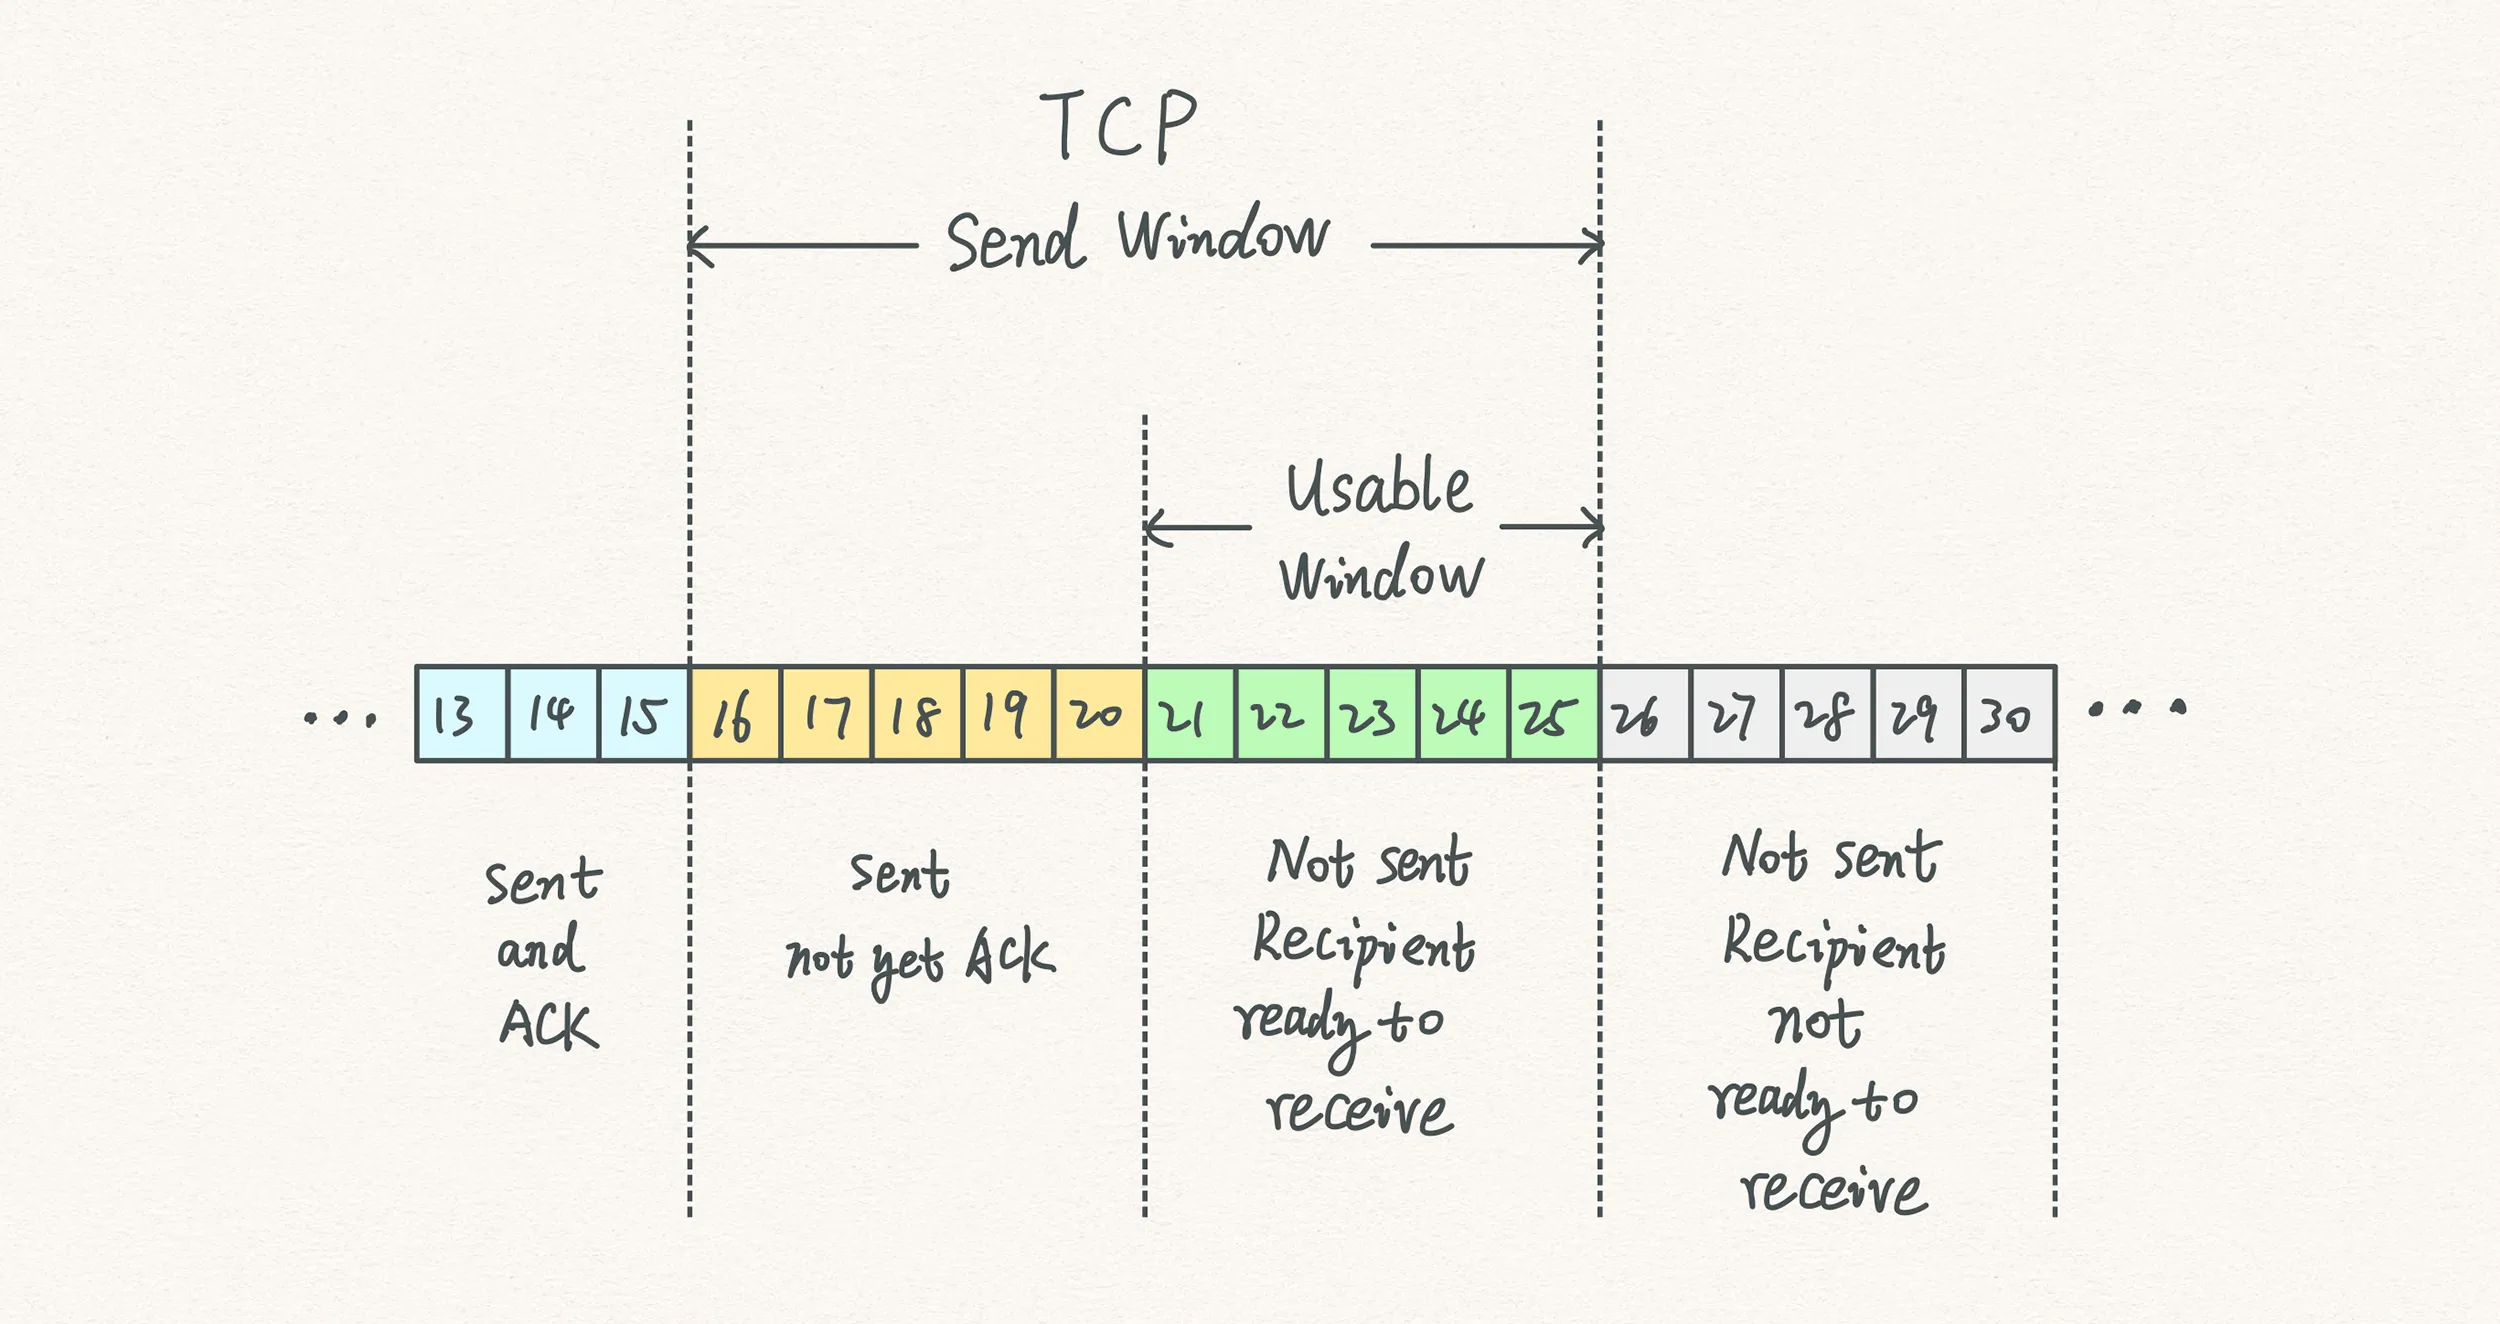 TCP
Send Window
Usable
Window
... 13 14 15 16 17 18 19 20 21 22 23 24 25 26 27 28 29 30 ...
sent
and
ACK
sent
not yet ACK
Not sent
Recipient
ready to
receive
Not sent
Recipient
not
ready to
receive